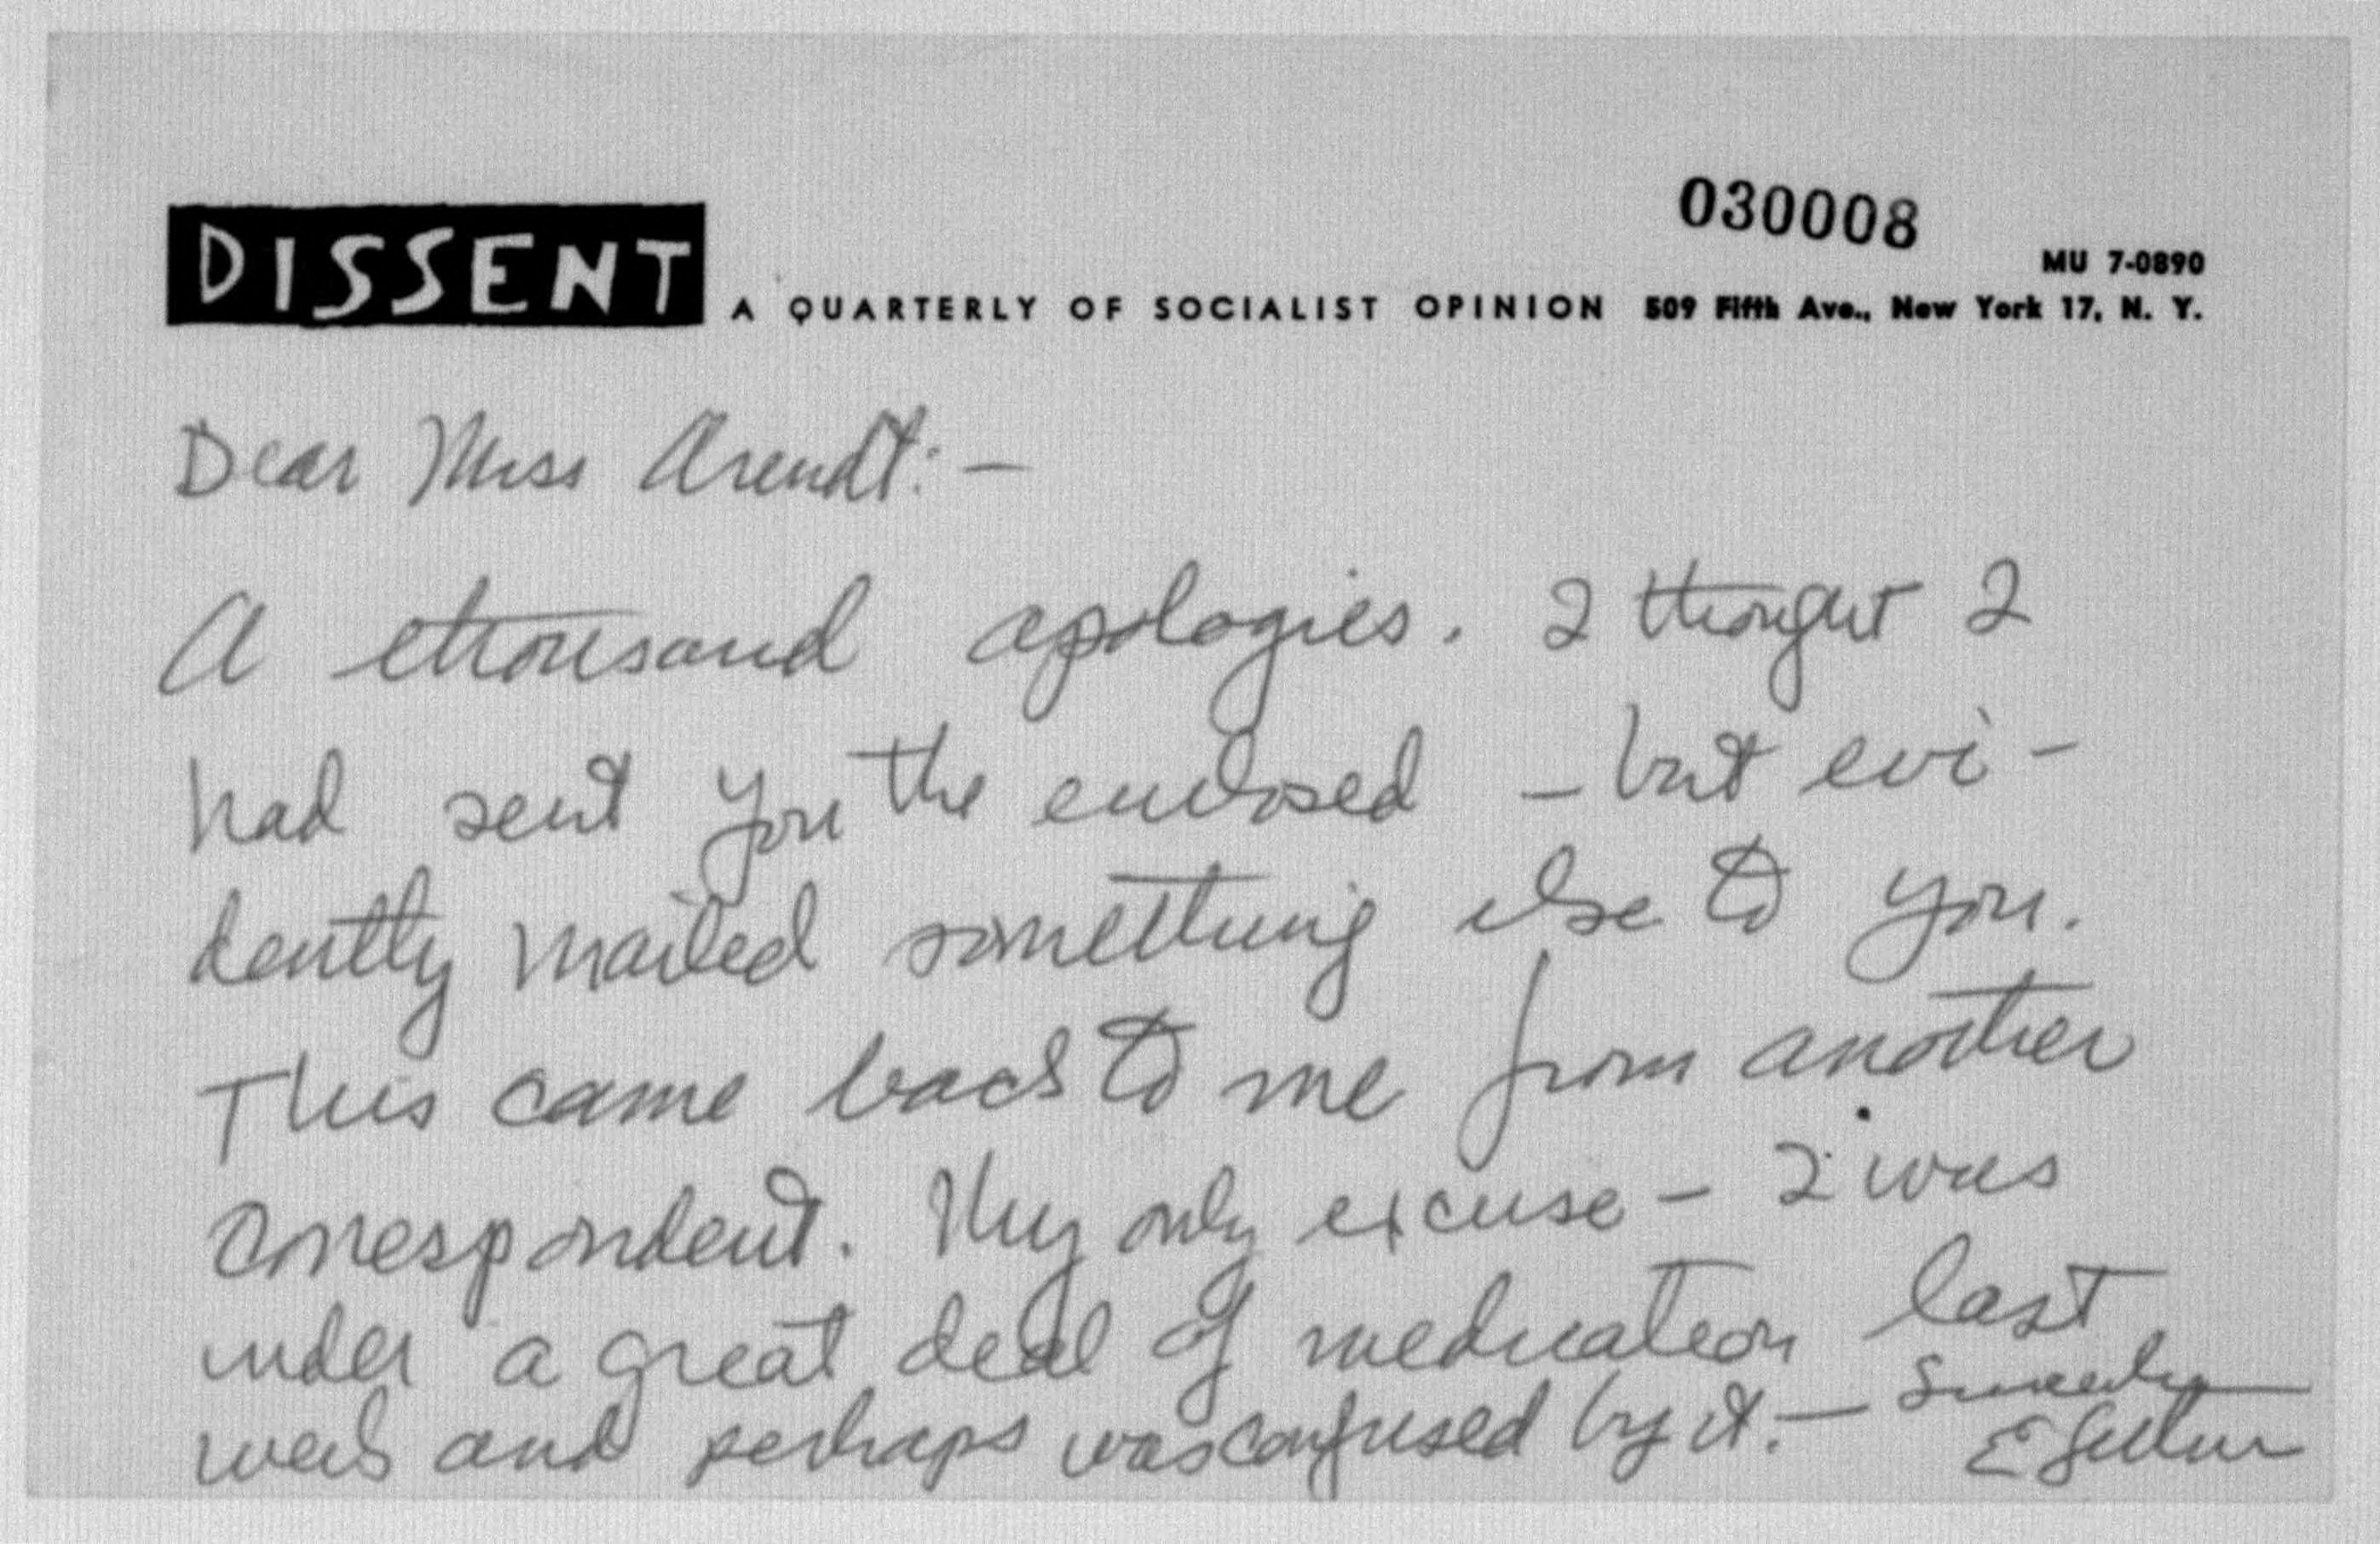 030008
MU 7-0890
DISSENT A QUARTERLY OF SOCIALIST OPINION 509 Fifth Ave., New York 17, N. Y.
Dear Miss Arendt: -
A thousand apologies. I thought I
had sent you the enclosed - but evi-
dently mailed something else to you.
This came back to me from another
correspondent. My only excuse - I was
under a great deal of medication last
week and perhaps was confused by it. - Sincerely
E